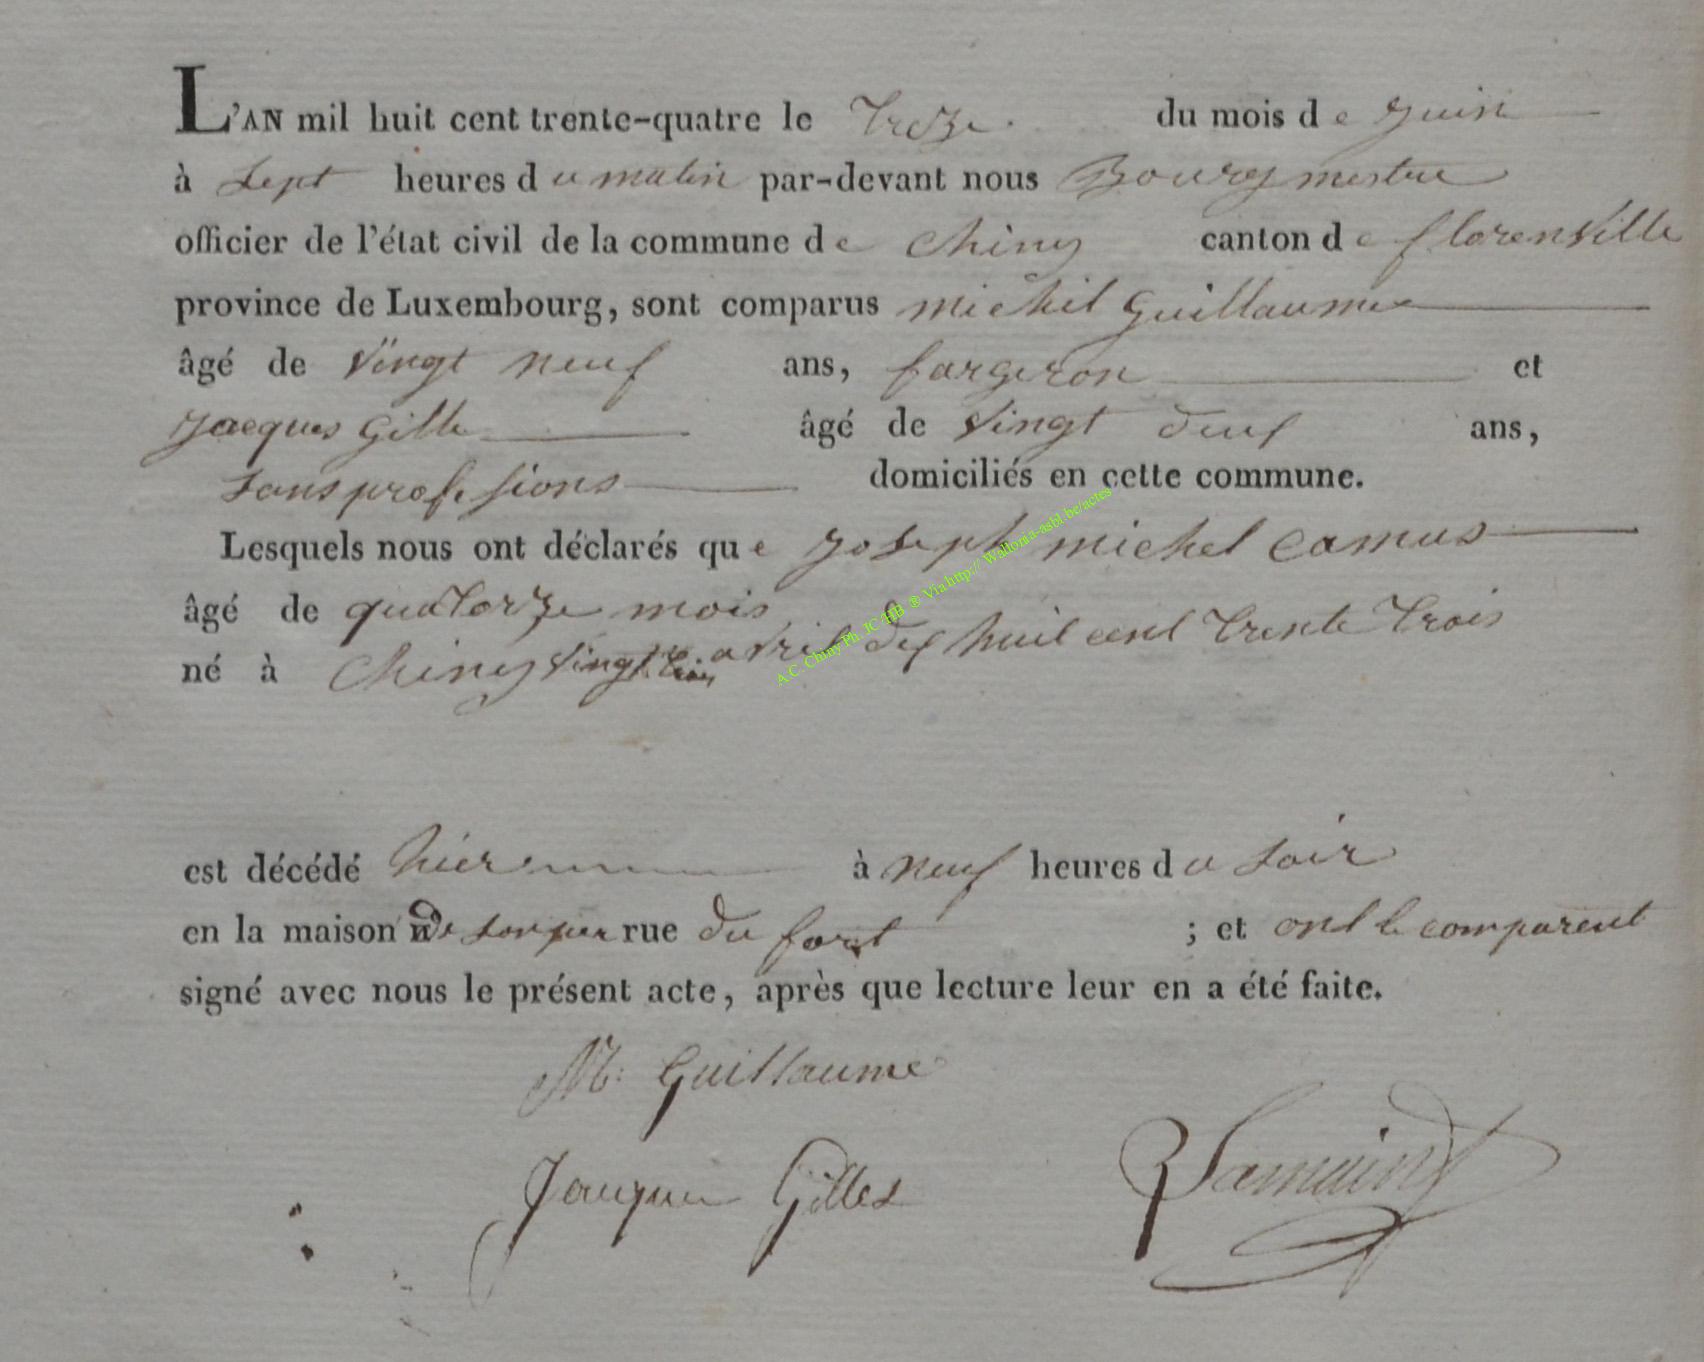 L'AN mil huit cent trente-quatre le treze du mois de juin
à sept heures du matin par-devant nous Bourgmestre
officier de l'état civil de la commune de Chiny canton de florenville
province de Luxembourg, sont comparus michel Guillaume
âgé de vingt neuf ans, forgeron et
jacques Gille âgé de vingt deux ans,
sans professions domiciliés en cette commune.
Lesquels nous ont déclarés que joseph michel camus
âgé de quatorze mois
né à Chiny vingt trois avril huit cent trente trois
A.C. Chiny Ph. JC HB ® Via http:// Wallonia-asbl.be/actes
est décédé hier à neuf heures du soir
en la maison de son rue du fort ; et ont le comparent
signé avec nous le présent acte, après que lecture leur en a été faite.
M: Guillaume
Jacques Gilles